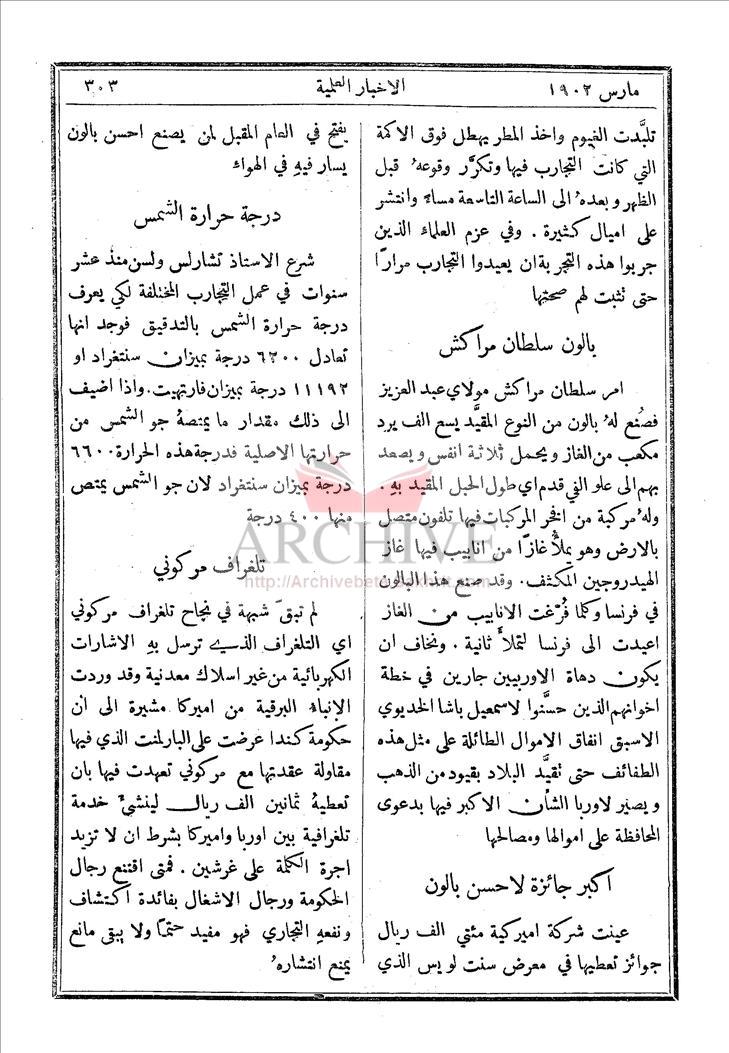 مارس ١٩٠٢
الاخبار العلمية
٣٠٣
تلبَّدت الغيوم واخذ المطر يهطل فوق الاكمة
التي كانت التجارب فيها وتكرَّر وقوعهُ قبل
الظهر وبعدهُ الى الساعة التاسعة مساءً وانتشر
على اميال كثيرة . وفي عزم العلماء الذين
جربوا هذه التجربة ان يعيدوا التجارب مرارًا
حتى تثبت لهم صحتها
بالون سلطان مراكش
امر سلطان مراكش مولاي عبد العزيز
فصُنع لهُ بالون من النوع المقيَّد يسع الف يرد
مكعب من الغاز ويحمل ثلاثة انفس ويصعد
بهم الى علو الفي قدم اي طول الحبل المقيد بهِ .
ولهُ مركبة من افخر المركبات فيها تلفون متصل
بالارض وهو يملأ غازًا من انابيب فيها غاز
الهيدروجين المكثف . وقد صنع هذا البالون
في فرنسا وكلما فُرّغت الانابيب من الغاز
اعيدت الى فرنسا لتملأ ثانية . ونخاف ان
يكون دهاة الاوربيين جارين في خطة
اخوانهم الذين حسَّنوا لاسمعيل باشا الخديوي
الاسبق انفاق الاموال الطائلة على مثل هذه
الطفائف حتى تقيَّد البلاد بقيود من الذهب
ويصير لاوربا الشأن الاكبر فيها بدعوى
المحافظة على اموالها ومصالحها
اكبر جائزة لاحسن بالون
عينت شركة اميركية مئتي الف ريال
جوائز تعطيها في معرض سنت لويس الذي
يفتح في العام المقبل لمن يصنع احسن بالون
يسار فيهِ في الهواء
درجة حرارة الشمس
شرع الاستاذ تشارلس ولسن منذ عشر
سنوات في عمل التجارب المختلفة لكي يعرف
درجة حرارة الشمس بالتدقيق فوجد انها
تعادل ٦٢٠٠ درجة بميزان سنتغراد او
١١١٩٢ درجة بميزان فارنهيت. واذا اضيف
الى ذلك مقدار ما يمتصهُ جو الشمس من
حرارتها الاصلية فدرجة هذه الحرارة ٦٦٠٠
درجة بميزان سنتغراد لان جو الشمس يمتص
منها ٤٠٠ درجة
تلغراف مركوني
لم تبقَ شبهة في نجاح تلغراف مركوني
اي التلغراف الذي ترسل بهِ الاشارات
الكهربائية من غير اسلاك معدنية وقد وردت
الانباء البرقية من اميركا مشيرة الى ان
حكومة كندا عرضت على البارلمنت الذي فيها
مقاولة عقدتها مع مركوني تعهدت فيها بان
تعطيهُ ثمانين الف ريال لينشئ خدمة
تلغرافية بين اوربا واميركا بشرط ان لا تزيد
اجرة الكلمة على غرشين . فمتى اقتنع رجال
الحكومة ورجال الاشغال بفائدة اكتشاف
ونفعهِ التجاري فهو مفيد حتمًا ولا يبقى مانع
يمنع انتشارهُ
ARCHIVE